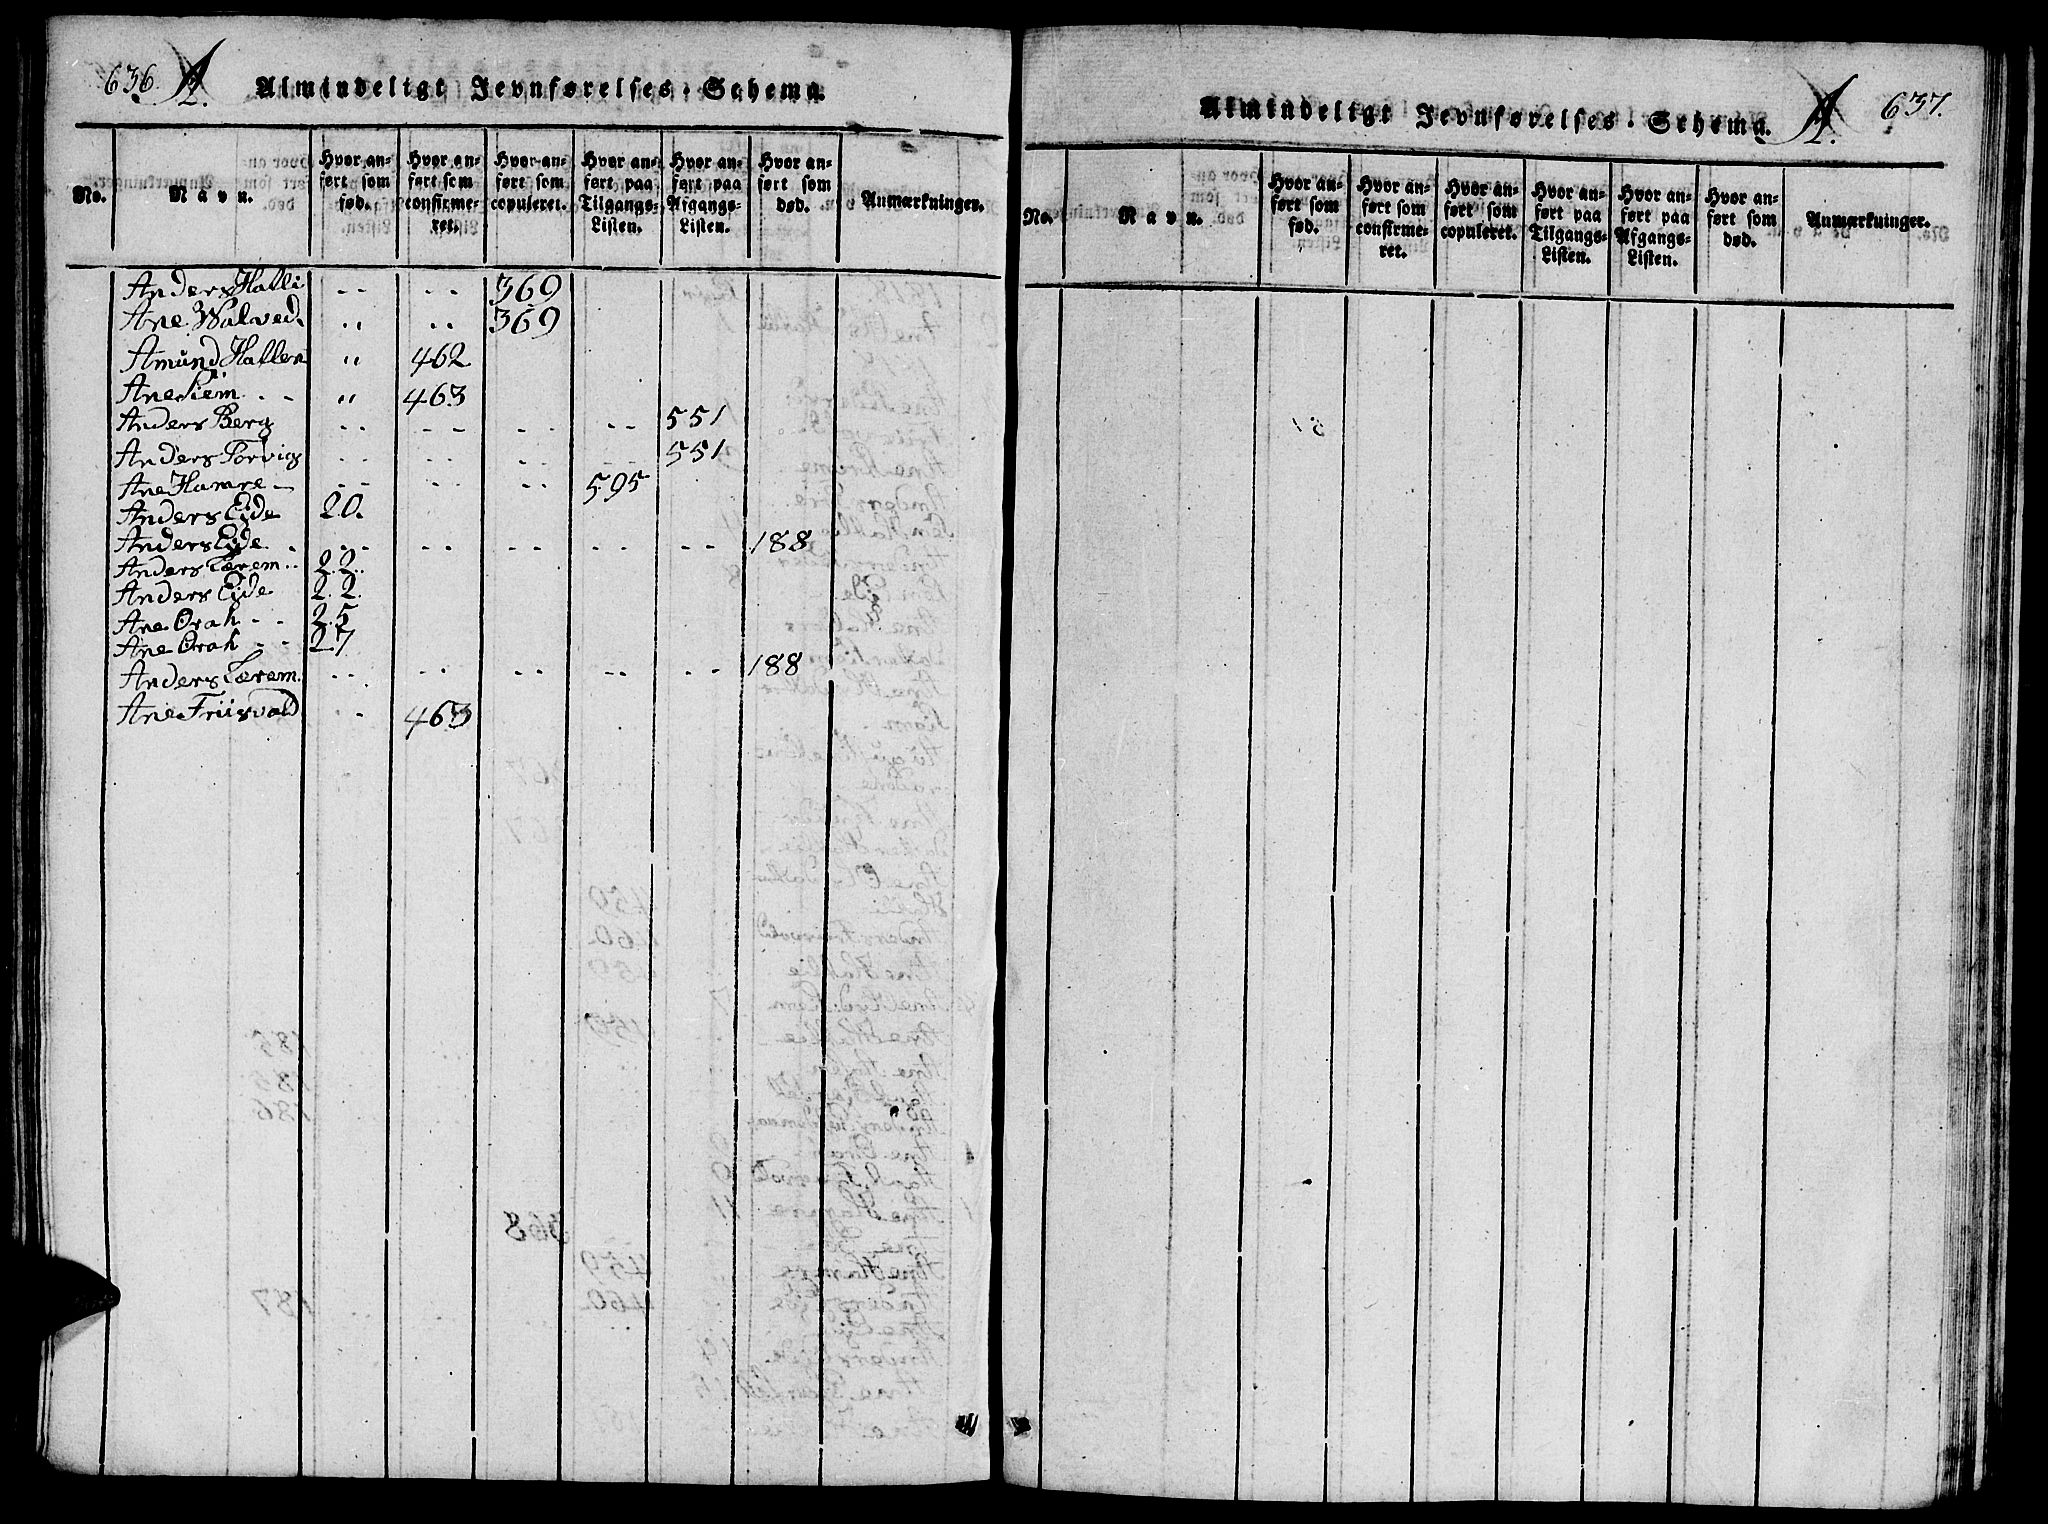 636. A.
Almindeligt Jevnførelses-Schema.
No. Navn. Hvor anført som fød. Hvor anført som confirmeret. Hvor anført som copuleret. Hvor anført paa Tilgangs-Listen. Hvor anført paa Afgangs-Listen. Hvor anført som død. Anmærkninger.
Anders Halli - - - - 369
Ane Walved. " " 369
Amund Haller " 462
Ane Siem - - " 463
Anders Berg - - - - - - - - 551
Anders Torvigs - - - - - - - - 551
Ane Hamre - - - - - - - 595
Anders Eide 20.
Anders Eide. - - - - - - - - - - - 188
Anders Tærem.. 22.
Anders Eide 22.
Ane Orah - - 25
Ane Orah - - 27
Anders Tærem. - - - - - - - - - - 188
Ane Friisvold - - 463
Almindeligt Jevnførelses-Schema. A. 637.
No. Navn. Hvor anført som fød. Hvor anført som confirmeret. Hvor anført som copuleret. Hvor anført paa Tilgangs-Listen. Hvor anført paa Afgangs-Listen. Hvor anført som død. Anmærkninger.